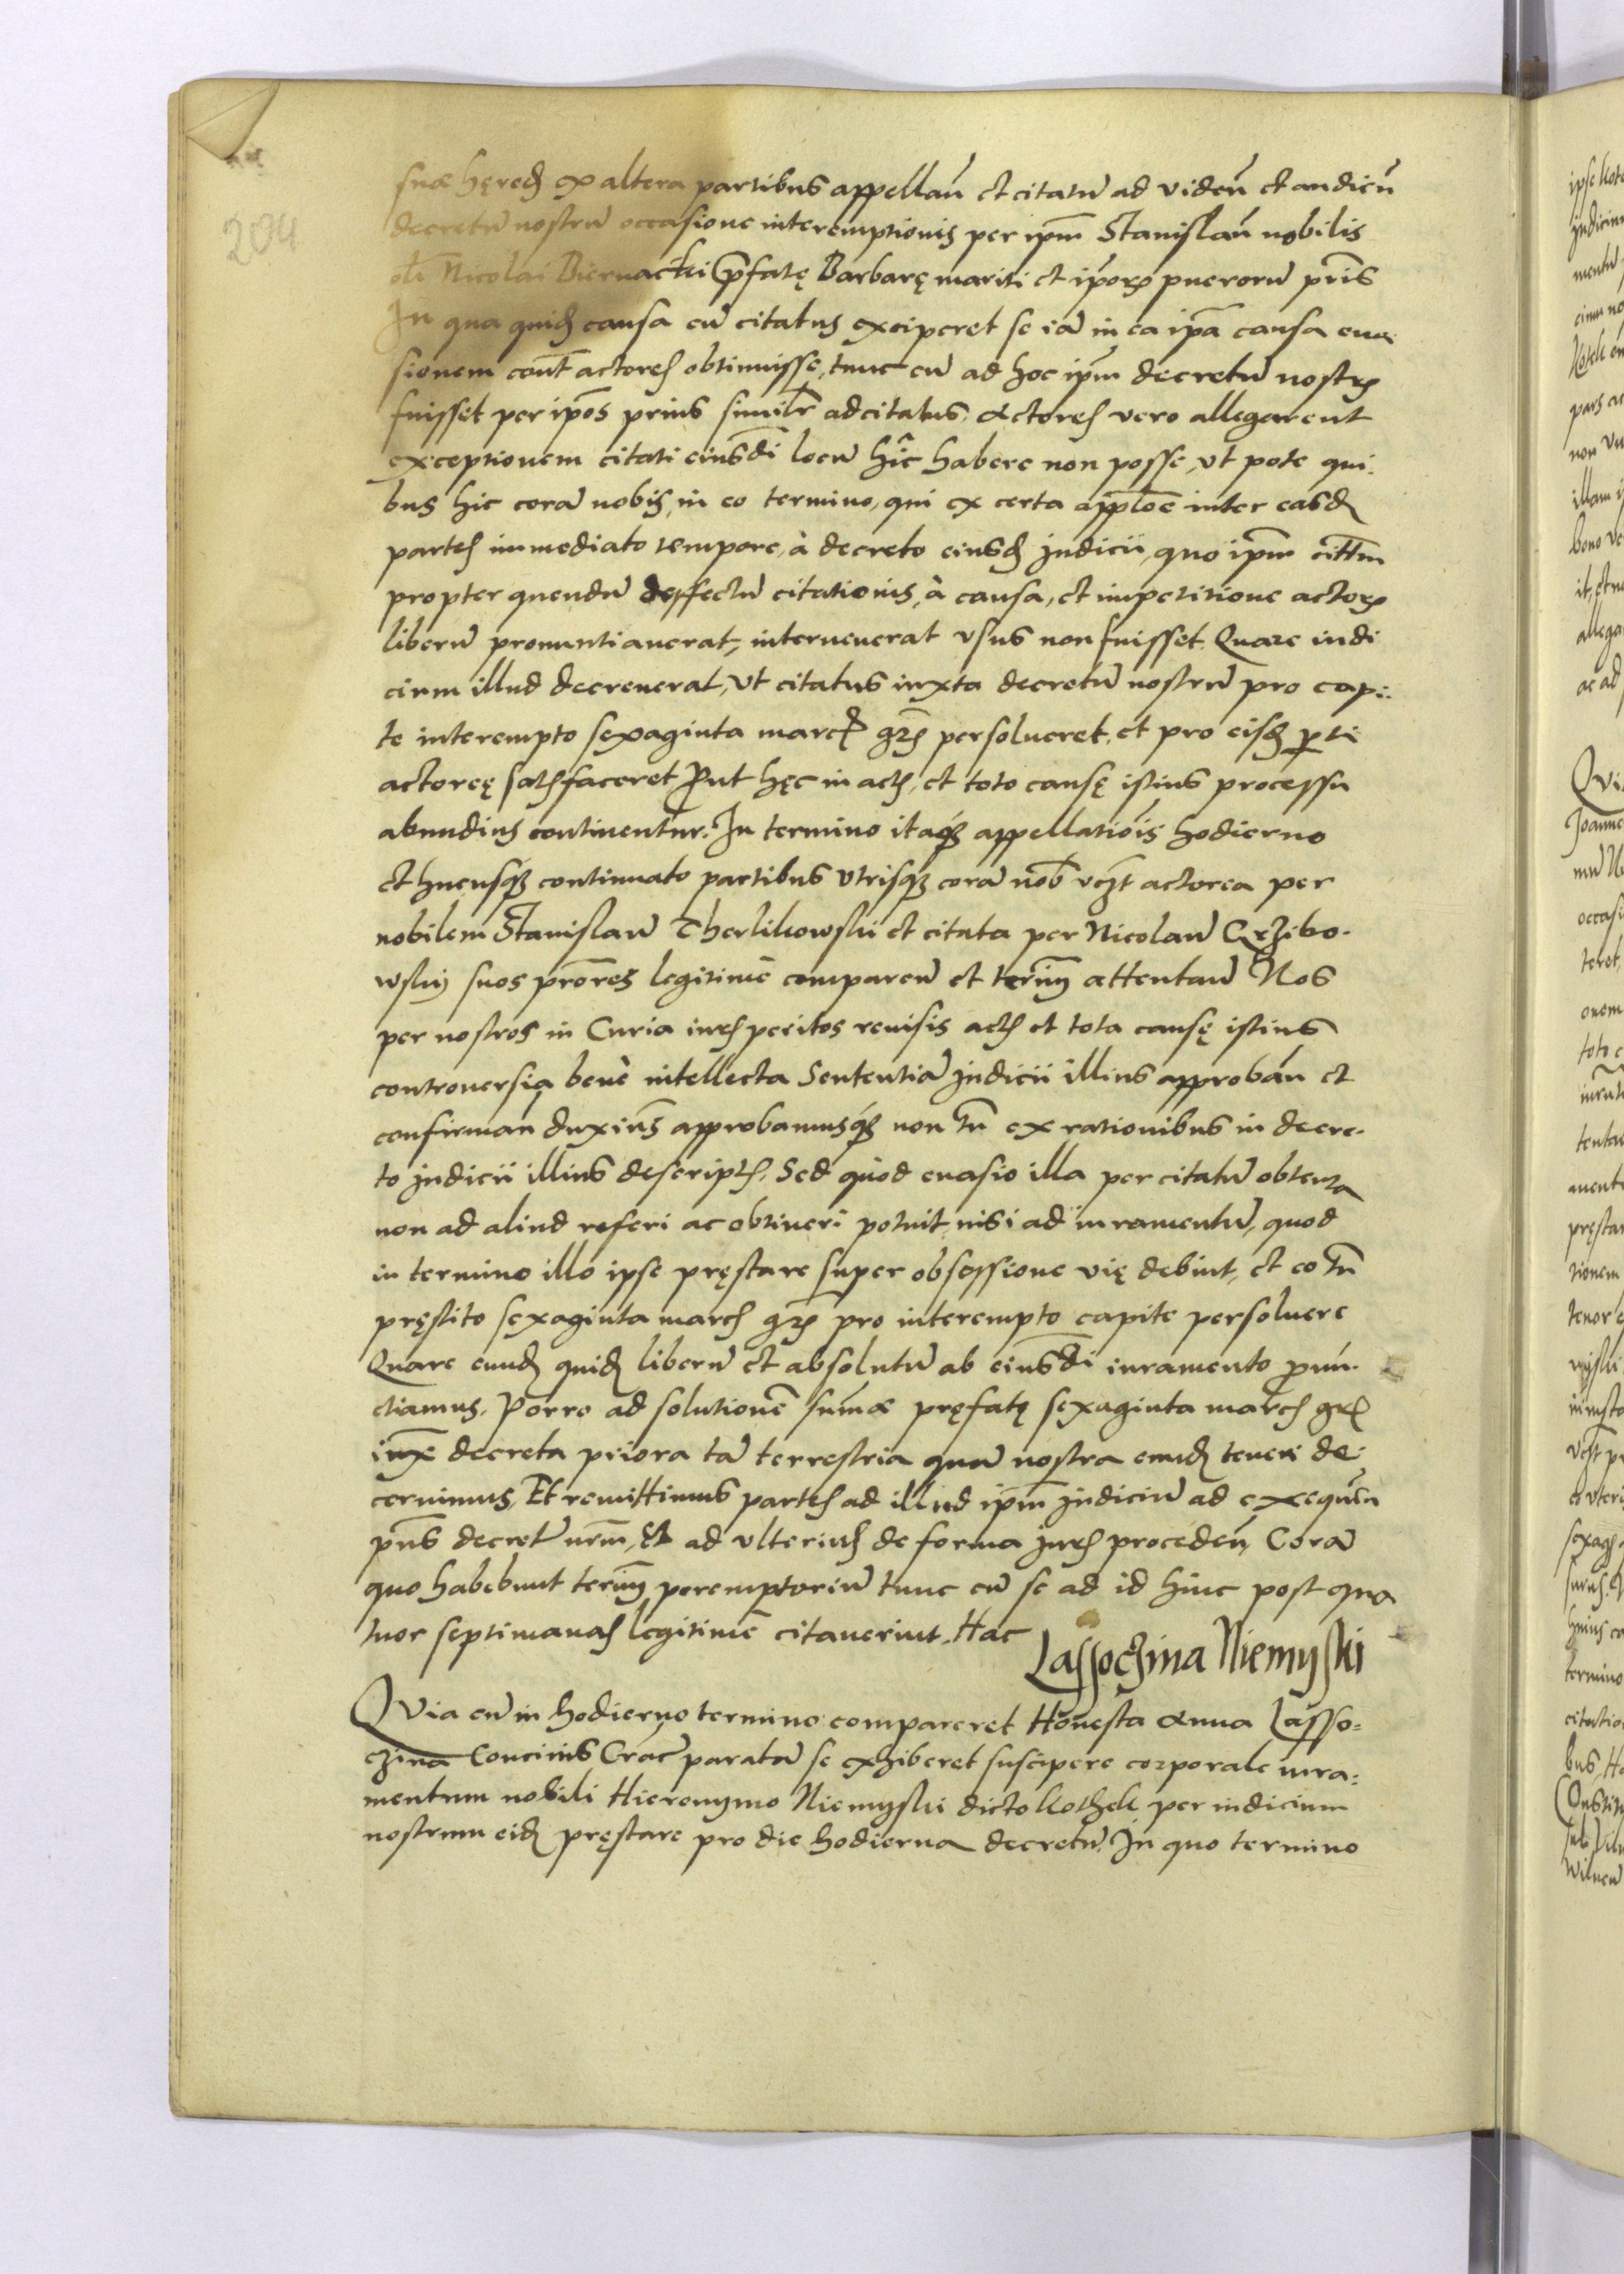 204
suæ hęred ex altera partibus appellań et citatū ad videń et audień
decretū nostrū occasione interemptionis per ipm Stanislaū nobilis
oli Nicolai Biernaczki p̄fatę Barbarę mariti et ipōrȝ puerorū pr̄is
In qua quid causa cū citatus exciperet se iā in ea ipā causa eua
sionem cont̄ actores obtinuisse, tunc cū ad hoc ipm decretū nostrȝ
fuisset per ipōs prius similr adcitatus, Actores vero allegarent
exceptionem citati eiusdi locū hîc habere non posse, vt pote qui.
bus hic corā nobis, in eo termino, qui ex certa applōe inter easd
partes immediato tempore, à decreto eiusd Judicii, quo ipm cittm
propter quendā deffectū citationis, à causa, et impetitione actorȝ
liberū pronuntiauerat, interuenerat vsus non fuisset. Quare iudi
cium illud decreuerat, vt citatus iuxta decretū nostrū pro capi.
te interempto sexaginta marcȝ grȝ persolueret, et pro eisd parti
actoreę satisfaceret Put hęc in actis, et toto causę istius processu
abundius continentur. In termino itaqȝ appellatiōis hodierno
et hucusqȝ continuato partibus vtrisqȝ corā nob vcȝt actorea per
nobilem Stanislaū Therlikowskii et citata per Nicolaū Grzibo.
wskij suos prōres legitimè comparēn et termī attentań Nos
per nostros in Curia iuris peritos reuisis actis et tota causę istius
controuersia benè intellecta Sententiā Judicii illius approbań et
confirmań duxim̄s approbamusqȝ non tn̄ ex rationibus in decre.
to judicii illius descriptis, Sed quòd euasio illa per citatū obtenta
non ad aliud referi ac obtineri potuit, nisi ad iuramentū, quod
in termino illo ipse pręstare super obsessione vię debuit, et eo tn̄
pręstito sexaginta marcis grȝ pro interempto capite persoluere
Quare eund quid liberū et absolutū ab eiusdi iuramento pnū.
ctiamus. Porro ad solutionē sum̄æ pręfatę sexaginta marcis grȝ
iuxᵉ decreta priora tā terrestria quā nostra eund teneri de.
cernimus, Et remittimus partes ad illud ipm̄ judiciū ad exequēn
pns decretū nrm, Et ad vlterius de forma iuris procedeń, Corā
quo habebunt termī peremptoriū tunc cū se ad id hinc post qua
tuor septimanas legitimè citauerint. Hac
Lassoczina Niemyski
Qvia cū in hodierno termino compareret Honesta Anna Lasso=
czina Conciuis Crac̄ paratā se exhiberet suscipere corporale iura:
mentum nobili Hieronymo Niemyski dicto Kothek per iudicium
nostrum eid pręstare pro die hodierna decretū. In quo termino